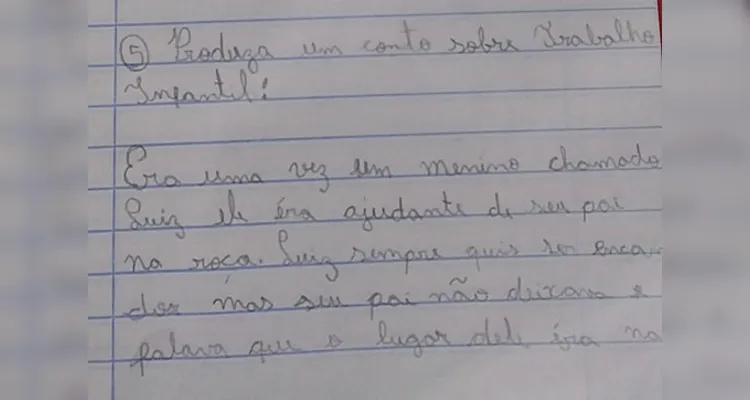 ⑤ Produza um conto sobre Trabalho
Infantil!
Era uma vez um menino chamado
Luiz ele éra ajudante de seu pai
na roça. Luiz sempre quis ser
dor mas seu pai não deixava e
falava que o lugar dele éra na